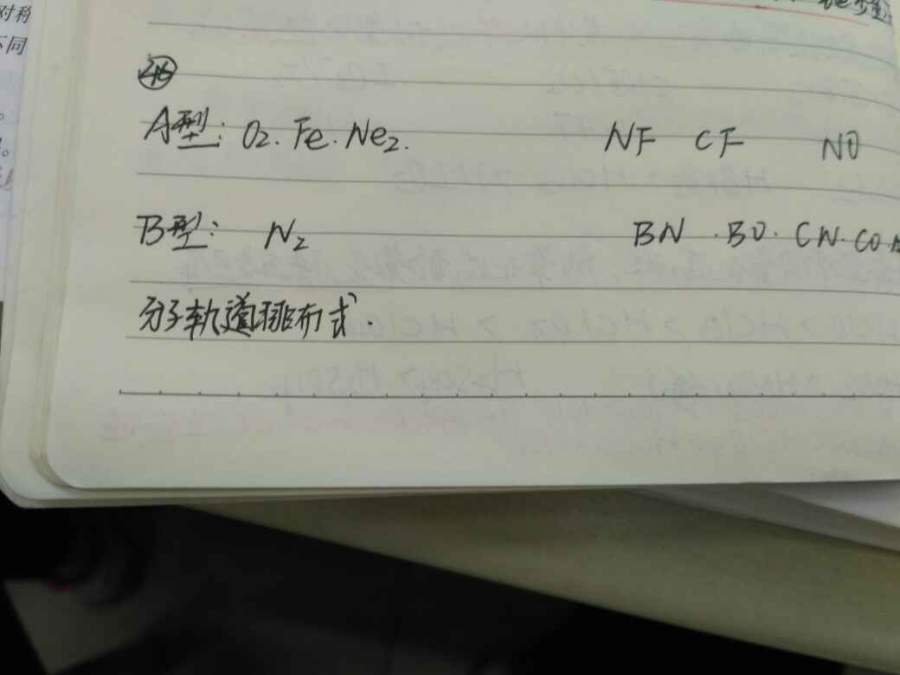 对称
不同
A型: O2. Fe. Ne2. NF CF NO
B型: N2 BN . BO. CN. CO.
分子轨道排布式.